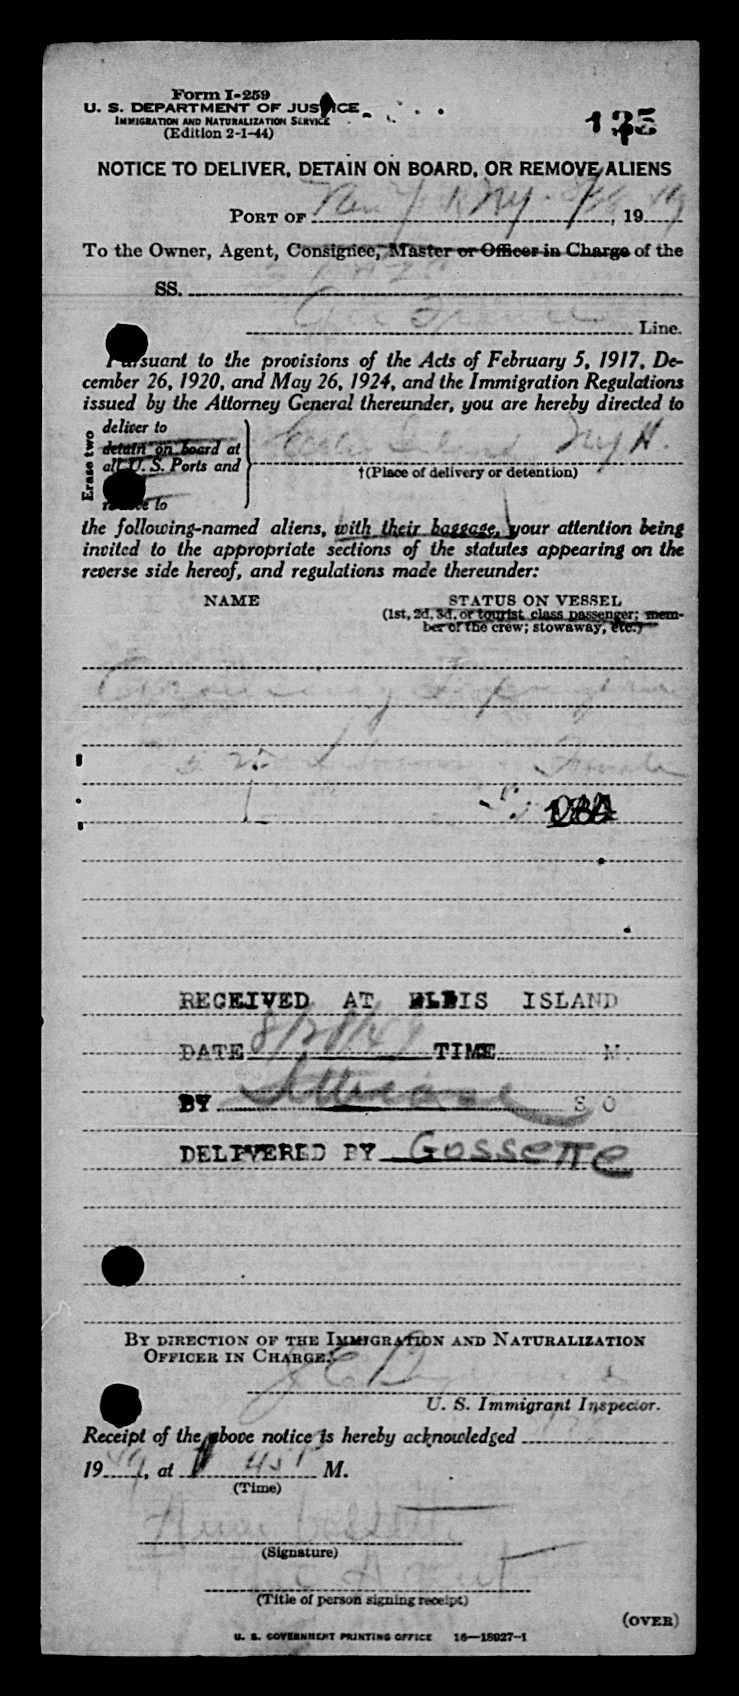 Form I-259
U. S. DEPARTMENT OF JUSTICE
IMMIGRATION AND NATURALIZATION SERVICE
(Edition 2-1-44)
135
NOTICE TO DELIVER, DETAIN ON BOARD, OR REMOVE ALIENS
PORT OF New York NY. 19 49
To the Owner, Agent, Consignee, Master or Officer in Charge of the
SS.
Air France Line.
Pursuant to the provisions of the Acts of February 5, 1917, De-
cember 26, 1920, and May 26, 1924, and the Immigration Regulations
issued by the Attorney General thereunder, you are hereby directed to
Erase two
deliver to
detain on board at
all U. S. Ports and
remove to
Ellis Island NYH.
†(Place of delivery or detention)
the following-named aliens, with their baggage, your attention being
invited to the appropriate sections of the statutes appearing on the
reverse side hereof, and regulations made thereunder:
NAME STATUS ON VESSEL
(1st, 2d, 3d, or tourist class passenger; mem-
ber of the crew; stowaway, etc.)
Female
RECEIVED AT ELLIS ISLAND
DATE 8/28/49 TIME M.
BY S O
DELIVERED BY GOSSETTe
BY DIRECTION OF THE IMMIGRATION AND NATURALIZATION
OFFICER IN CHARGE.
U. S. Immigrant Inspector.
Receipt of the above notice is hereby acknowledged
19 49, at 45 P M.
(Time)
(Signature)
Agent
(Title of person signing receipt)
(OVER)
U. S. GOVERNMENT PRINTING OFFICE 16—18927-1